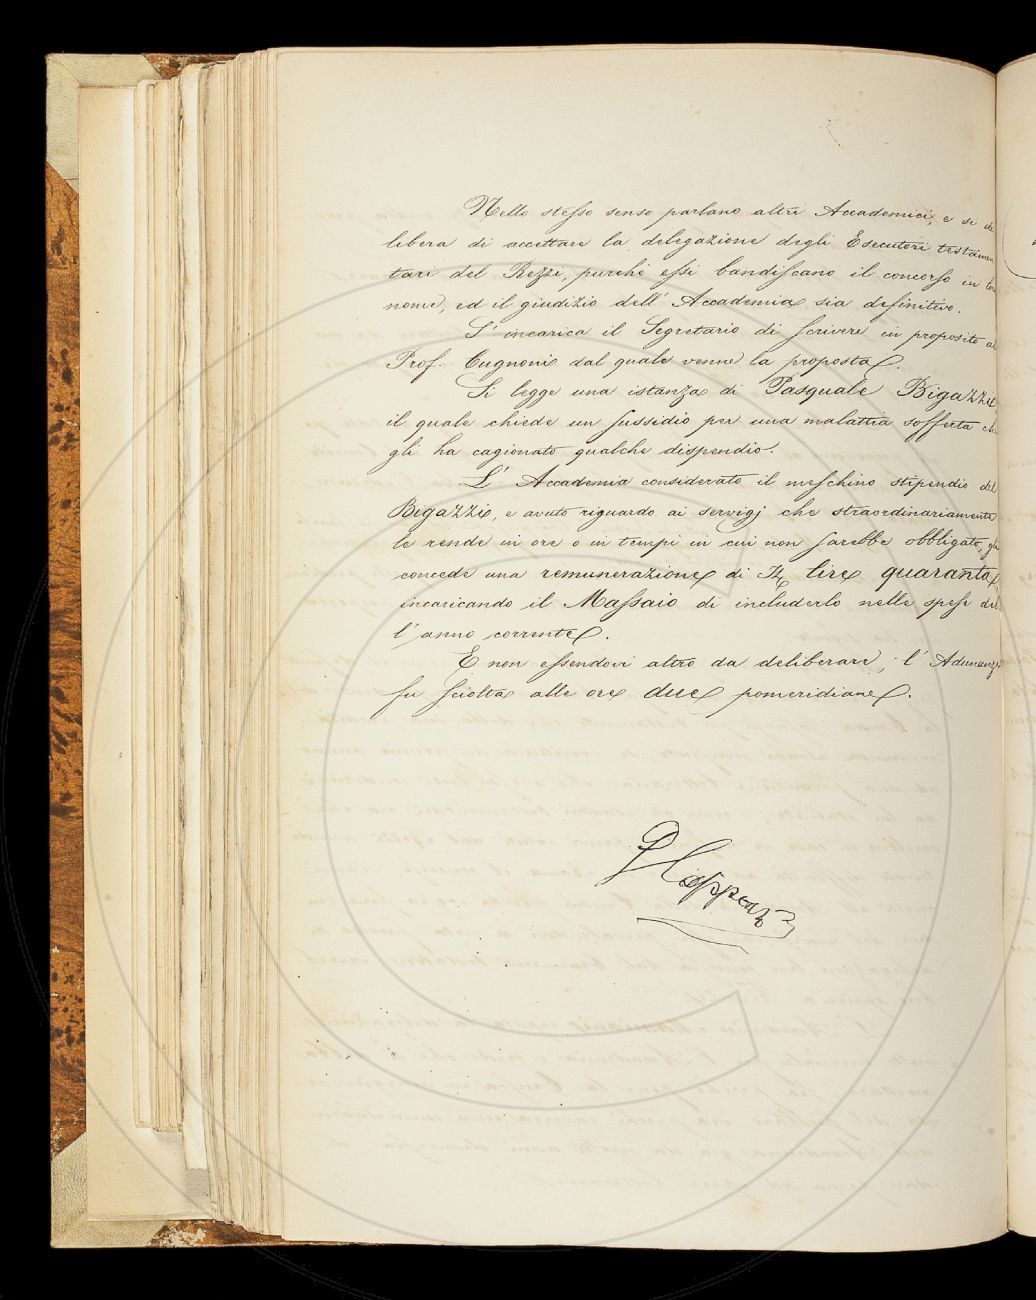 Nello stesso senso parlano altri Accademici, e si de
libera di accettare la delegazione degli Esecutori testamen
tari del Rezzi, purchè essi bandiscano il concorso in loro
nome, ed il giudizio dell' Accademia sia definitivo.
S'incarica il Segretario di scrivere in proposito al
Prof. Cugnoni dal quale venne la proposta.
Si legge una istanza di Pasquale Bigazzi,
il quale chiede un sussidio per una malattia sofferta che
gli ha cagionato qualche dispendio.
L' Accademia considerato il meschino stipendio del
Bigazzi, e avuto riguardo ai servigj che straordinariamente
le rende in ore o in tempi in cui non sarebbe obbligato, gli
concede una remunerazione di It. lire quaranta,
incaricando il Massaio di includerlo nelle spese del
l'anno corrente.
E non essendovi altro da deliberare, l' Adunanza
fu sciolta alle ore due pomeridiane.
G Capponi